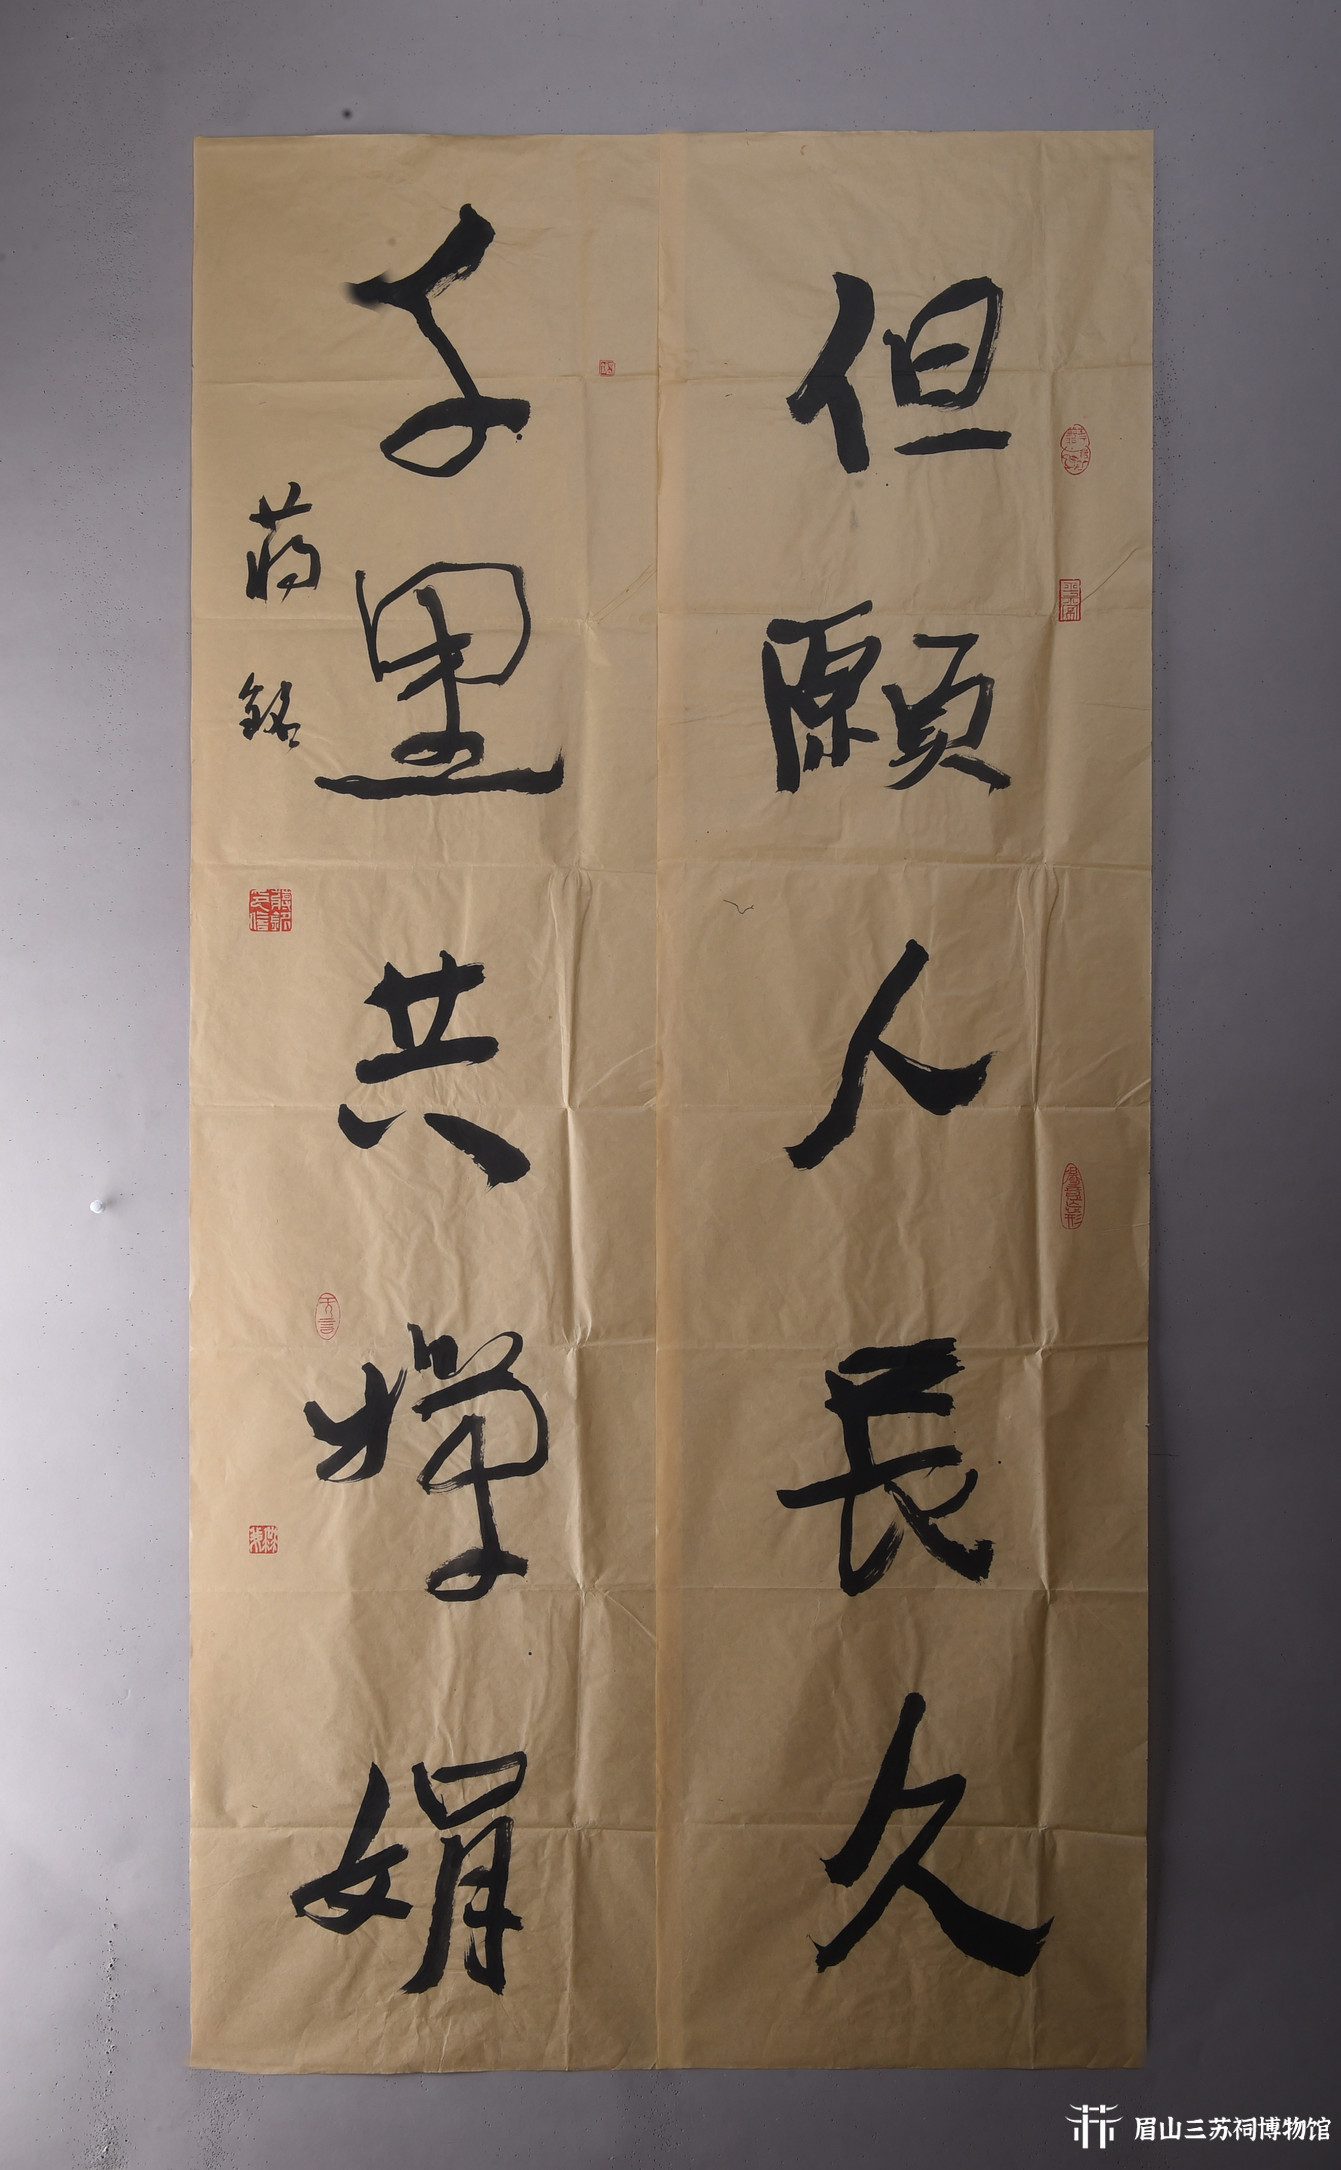 但願人長久
千里共嬋娟
蒋銘
眉山三苏祠博物馆